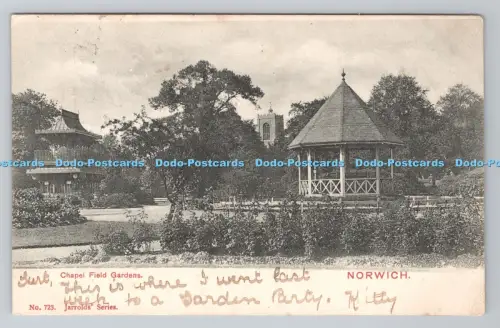 Dodo-Postcards Dodo-Postcards Dodo-Postcards Dodo-Postcards
Chapel Field Gardens. NORWICH.
Gurt, This is where I went last
week to a Garden Party. Kitty
No. 723. Jarrolds' Series.